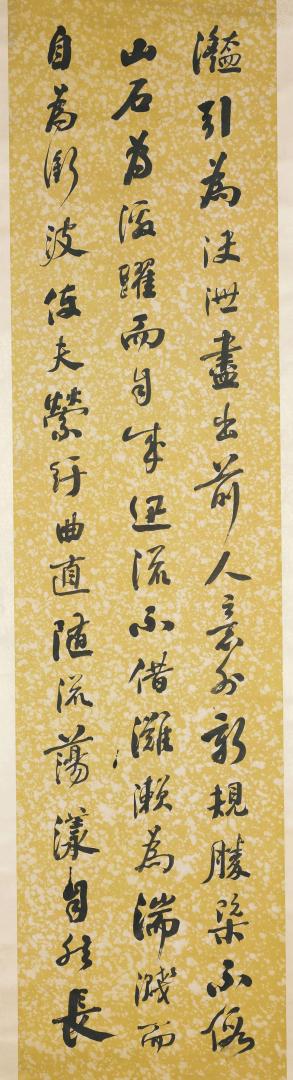 濫引為決泄盡出前人意外新規勝槩不假
山石為激躍而自成迅流不借灘瀨為湍濺而
自為衝波使夫縈紆曲直隨流蕩漾自然長